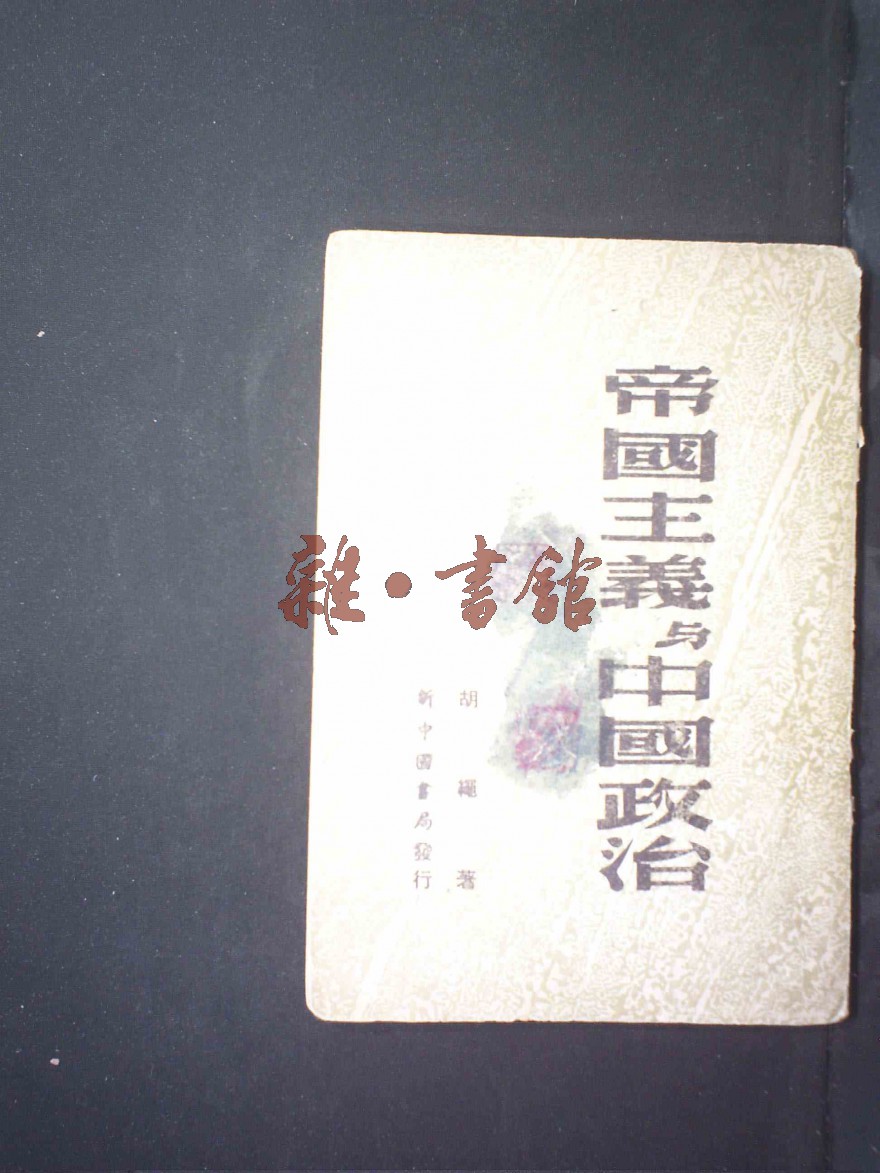 帝國主義与中國政治
胡繩著
新中國書局發行
雜·書館